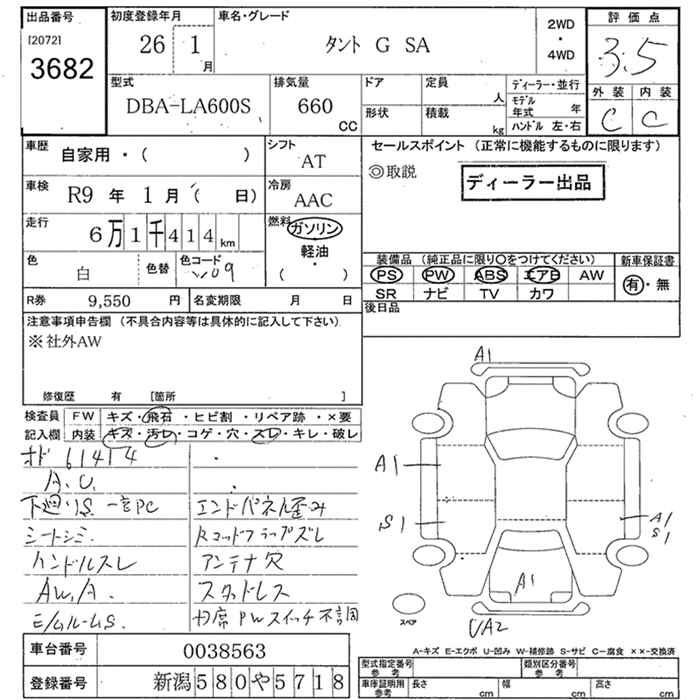 出品番号
[2072]
3682
初度登録年月
26 1月
車名・グレード
タント G SA
2WD
・
4WD
評価点
3.5
外装 内装
C C
型式
DBA-LA600S
排気量
660
CC
ドア
形状
定員
人
積載
kg
ディーラー・並行
モデル年式 年
ハンドル 左・右
車歴
自家用・( )
シフト
AT
車検
R9 年 1月 ( 日)
冷房
AAC
走行
6万1千414km
燃料
ガソリン
軽油
( ・ )
色
白
色替
色コード
W09
R券 9,550 円
名変期限 月 日
セールスポイント (正常に機能するものに限ります)
◎取説
ディーラー出品
装備品 (純正品に限り○をつけてください)
PS PW ABS エアB AW
SR ナビ TV カワ
新車保証書
有・無
後日品
注意事項申告欄 (不具合内容等は具体的に記入して下さい)
※社外AW
修復歴 有 [箇所 ]
検査員
記入欄
FW キズ・飛石・ヒビ割・リペア跡・×要
内装 キズ・汚レ・コゲ・穴・スレ・キレ・破レ
61414
A.U.
下廻りS 一部PC
エンドパネル歪み
シートシミ
ハンドルスレ
アンテナ穴
AW,A.
スタッドレス
PWスイッチ不調
A1
A1
S1
A1
S1
A1
UA2
スペア
A-キズ E-エクボ U-凹み W-補修跡 S-サビ C-腐食 ××-交換済
車台番号 0038563
登録番号 新潟580や5718
型式指定番号
参考
類別区分番号
参考
車庫証明用
参考
長さ cm
幅 cm
高さ cm